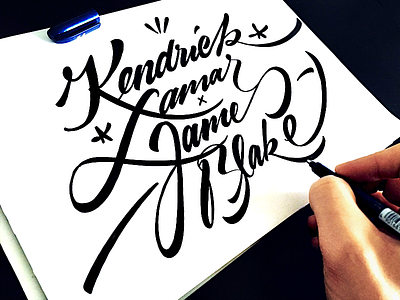 Kendrick
Lamar
x
James
Blake